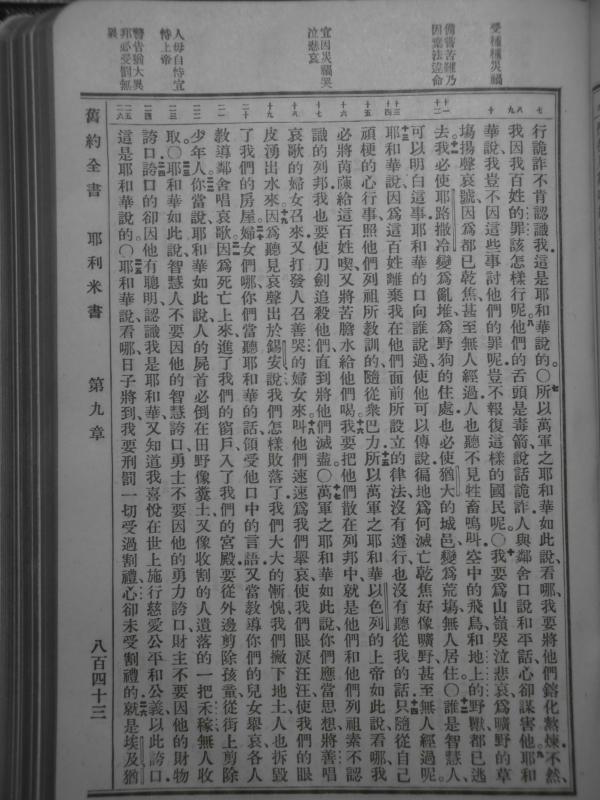 受種種災禍
備嘗苦難乃
因棄法違命
宜因災禍哭
泣悲哀
人毋自恃宜
恃上帝
警吿猶大異
邦必受罰無
異
行詭詐不肯認識我這是耶和華說的〇所以萬軍之耶和華如此說看哪我要將他們鎔化熬煉不然
我因我百姓的罪該怎樣行呢他們的舌頭是毒箭說話詭詐人與鄰舍口說和平話心卻謀害他耶和
華說我豈不因這些事討他們的罪呢豈不報復這樣的國民呢〇我要爲山嶺哭泣悲哀爲曠野的草
塲揚聲哀號因爲都已乾焦甚至無人經過人也聽不見牲畜鳴叫空中的飛鳥和地上的野獸都已逃
去我必使耶路撒冷變爲亂堆爲野狗的住處也必使猶大的城邑變爲荒塲無人居住〇誰是智慧人
可以明白這事耶和華的口向誰說過使他可以傳說徧地爲何滅亡乾焦好像曠野甚至無人經過呢
耶和華說因爲這百姓離棄我在他們面前所設立的律法沒有遵行也沒有聽從我的話只隨從自己
頑梗的心行事照他們列祖所敎訓的隨從衆巴力所以萬軍之耶和華以色列的上帝如此說看哪我
必將茵蔯給這百姓喫又將苦膽水給他們喝我要把他們散在列邦中就是他們和他們列祖素不認
識的列邦我也要使刀劍追殺他們直到將他們滅盡〇萬軍之耶和華如此說你們應當思想將善唱
哀歌的婦女召來又打發人召善哭的婦女來叫他們速速爲我們舉哀使我們眼淚汪汪使我們的眼
皮湧出水來因爲聽見哀聲出於錫安說我們怎樣敗落了我們大大的慚愧我們撇下地土人也拆毀
了我們的房屋婦女們哪你們當聽耶和華的話領受他口中的言語又當敎導你們的兒女舉哀各人
敎導鄰舍唱哀歌因爲死亡上來進了我們的窗戶入了我們的宮殿要從外邊剪除孩童從街上剪除
少年人你當說耶和華如此說人的屍首必倒在田野像糞土又像收割的人遺落的一把禾稼無人收
取〇耶和華如此說智慧人不要因他的智慧誇口勇士不要因他的勇力誇口財主不要因他的財物
誇口誇口的卻因他有聰明認識我是耶和華又知道我喜悅在世上施行慈愛公平和公義以此誇口
這是耶和華說的〇耶和華說看哪日子將到我要刑罰一切受過割禮心卻未受割禮的就是埃及猶
舊約全書　耶利米書　第九章　八百四十三